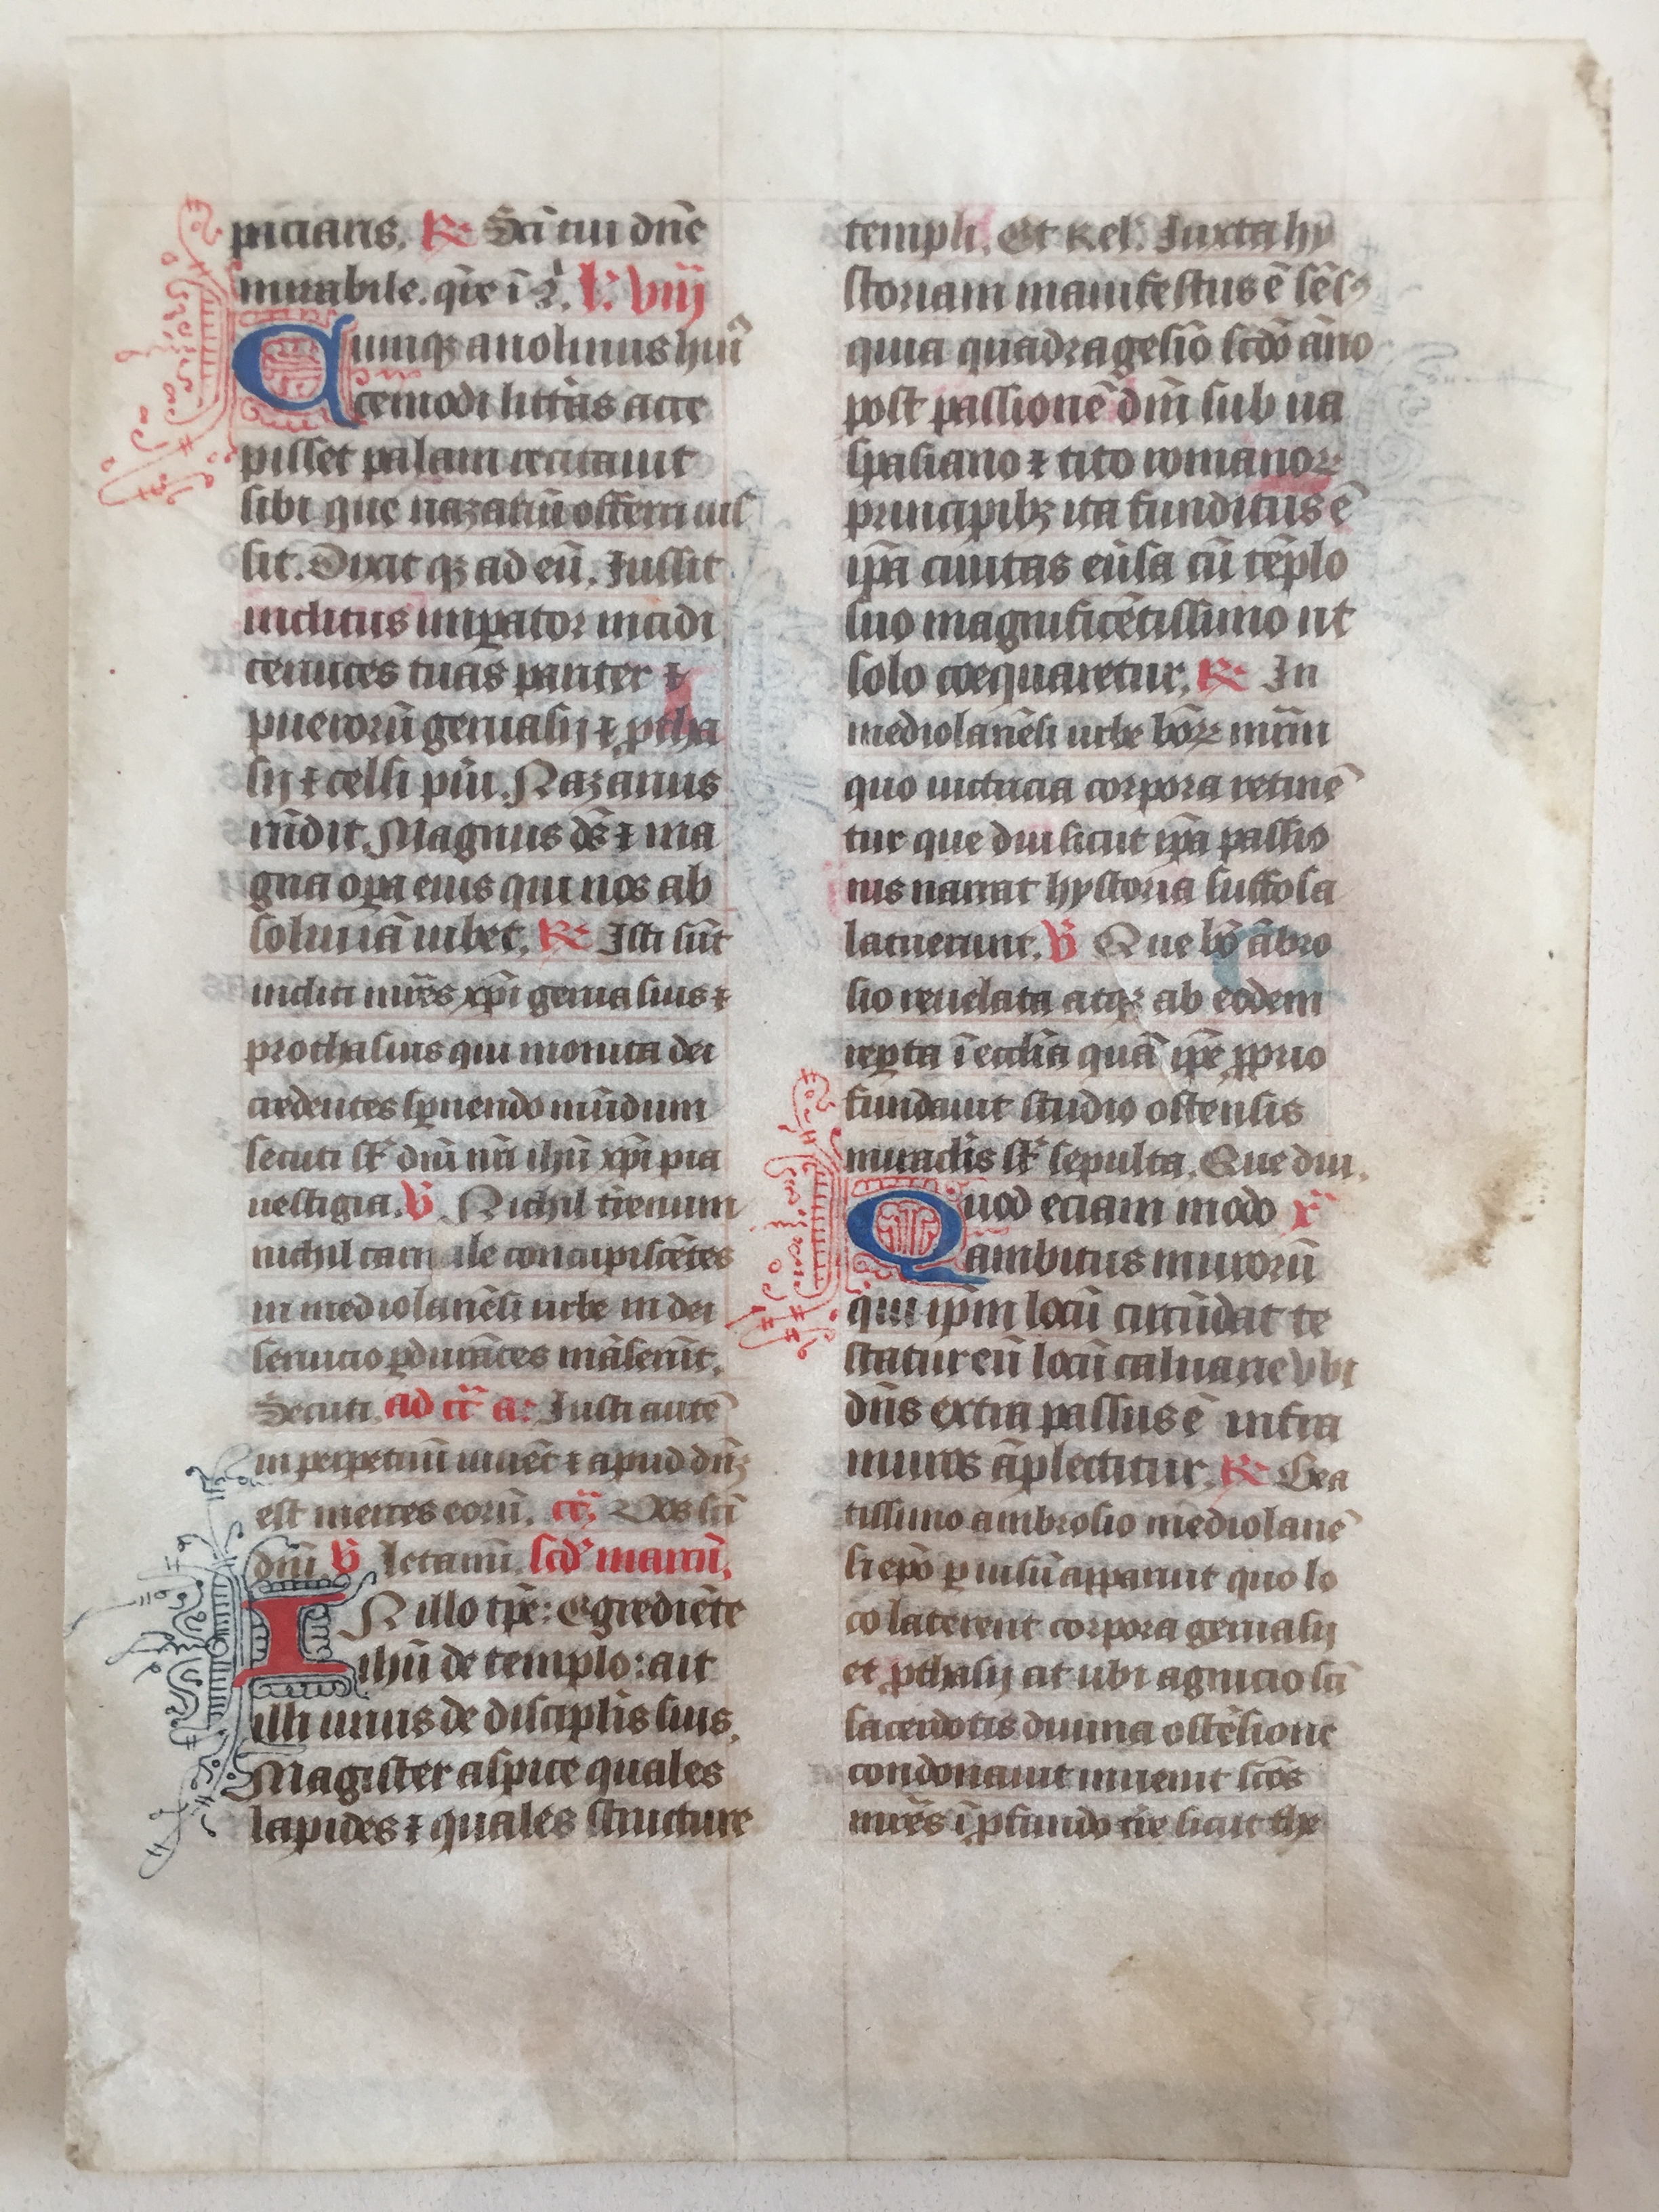 piciaris. R Sci tui dne
mirabile. qre i 2. l. viij
Cumqz anolinus hui
cemodi litteras acce
pisset palam recitauit
sibi que nazariu offerri ius
sit. Dixit qz ad eu. Iussit
inclitus imperator incidi
ceruices tuas pariter ⁊
puerorū geruasij ⁊ ptha
sij ⁊ celsi pūi. Nazarius
rūdit. Magnus ds̄ ⁊ ma
gna opa eius qui nos ab
solui iā iubet. R Isti sūt
incliti mr̄es xp̄i geruasius ⁊
prothasius qui monita dei
credentes spernendo mūdum
secuti st̄ dn̄m nr̄m ihū xp̄i pia
uestigia. V Nichil terrenum
nichil carnale concupiscētes
in mediolanēsi urbe in dei
seruicio pdurātes māserūt.
Secuti. ad cā a: Iusti autē
in perpetuū uiuēt ⁊ apud dn̄z
est merces eorū. ccz Vos sci
dn̄i V letamī. scd' marcū.
IN illo tp̄e: Egrediēte
ihū de templo: ait
illi unus de discip̄lis suis.
Magister aspice quales
lapides ⁊ quales structure
templi. Et rel'. Iuxta hy
storiam manifestus ē sēs9
quia quadragesīo scdō āno
post passionē dn̄i sub ua
spasiano ⁊ tito romanoꝝ
principibz ita funditus ē
ip̄a ciuitas eūsa cū tēplo
suo magnificētissimo ut
solo coequaretur. R In
mediolanēsi urbe bōꝝ mr̄m
quo uictricia corpora retinē
tur que diu sicut ip̄a passio
nis narrat hystoria suffosa
latuerunt. V Que bō ābro
sio reuelata atqz ab eodem
repta ī eccl̄ia quā ip̄e pprio
fundauit studio ostensis
miraclis st̄ sepulta. Que diu.
Quod eciam modo r
ambitus murorū
qui ip̄m locū circūdat te
statur eū locū caluarie vbi
dn̄s extra passus ē infra
muros āplectitur. R Bea
tissimo ambrosio mediolanē
si ep̄o p uisū apparuit quo lo
co laterent corpora geruasij
et pthasij at ubi agnicio sci
sacerdotis diuina ostēsione
condonauit inuenit scōs
mr̄es ī pfundo tr̄e sicut the